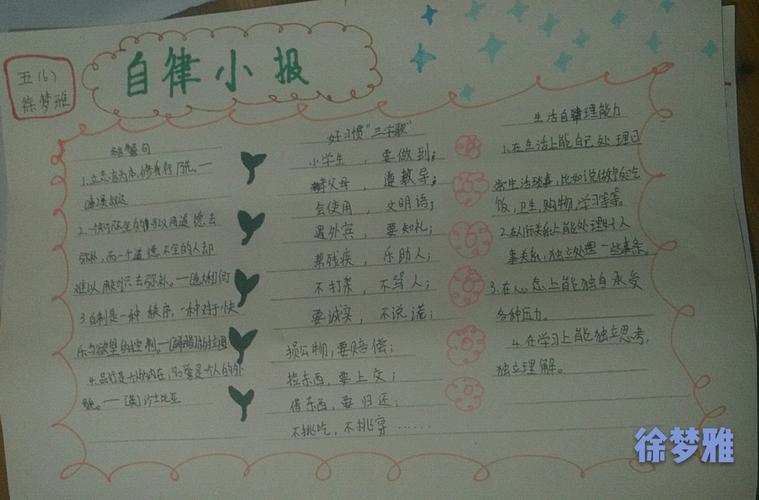 自律小报
五(6)
徐梦雅
警句
1.立志当为本,修身行
2.一个
弥补,而一个道德不全的人却
难以用知识去弥补。——
3.自制是一种秩序,一种对于快
乐与欲望的控制。——
外
貌。——[英]莎士比亚
好习惯"三字歌"
小学生,要做到;
孝父母,遵教导;
会使用,文明语;
遇外宾,要知礼;
帮残疾,乐助人;
不打架,不骂人;
要诚实,不说谎;
损公物,要赔偿;
捡东西,要上交;
借东西,要归还;
不挑吃,不挑穿……
生活自律理能力
1.在生活上能自己处理日
常生活琐事,比如说做饭吃
饭,卫生,购物,学习等等。
2.在人际关系上能处理好人
事关系,独立处理一些事务。
3.在心态上能独自承受
各种压力。
4.在学习上能独立思考,
独立理解。
徐梦雅